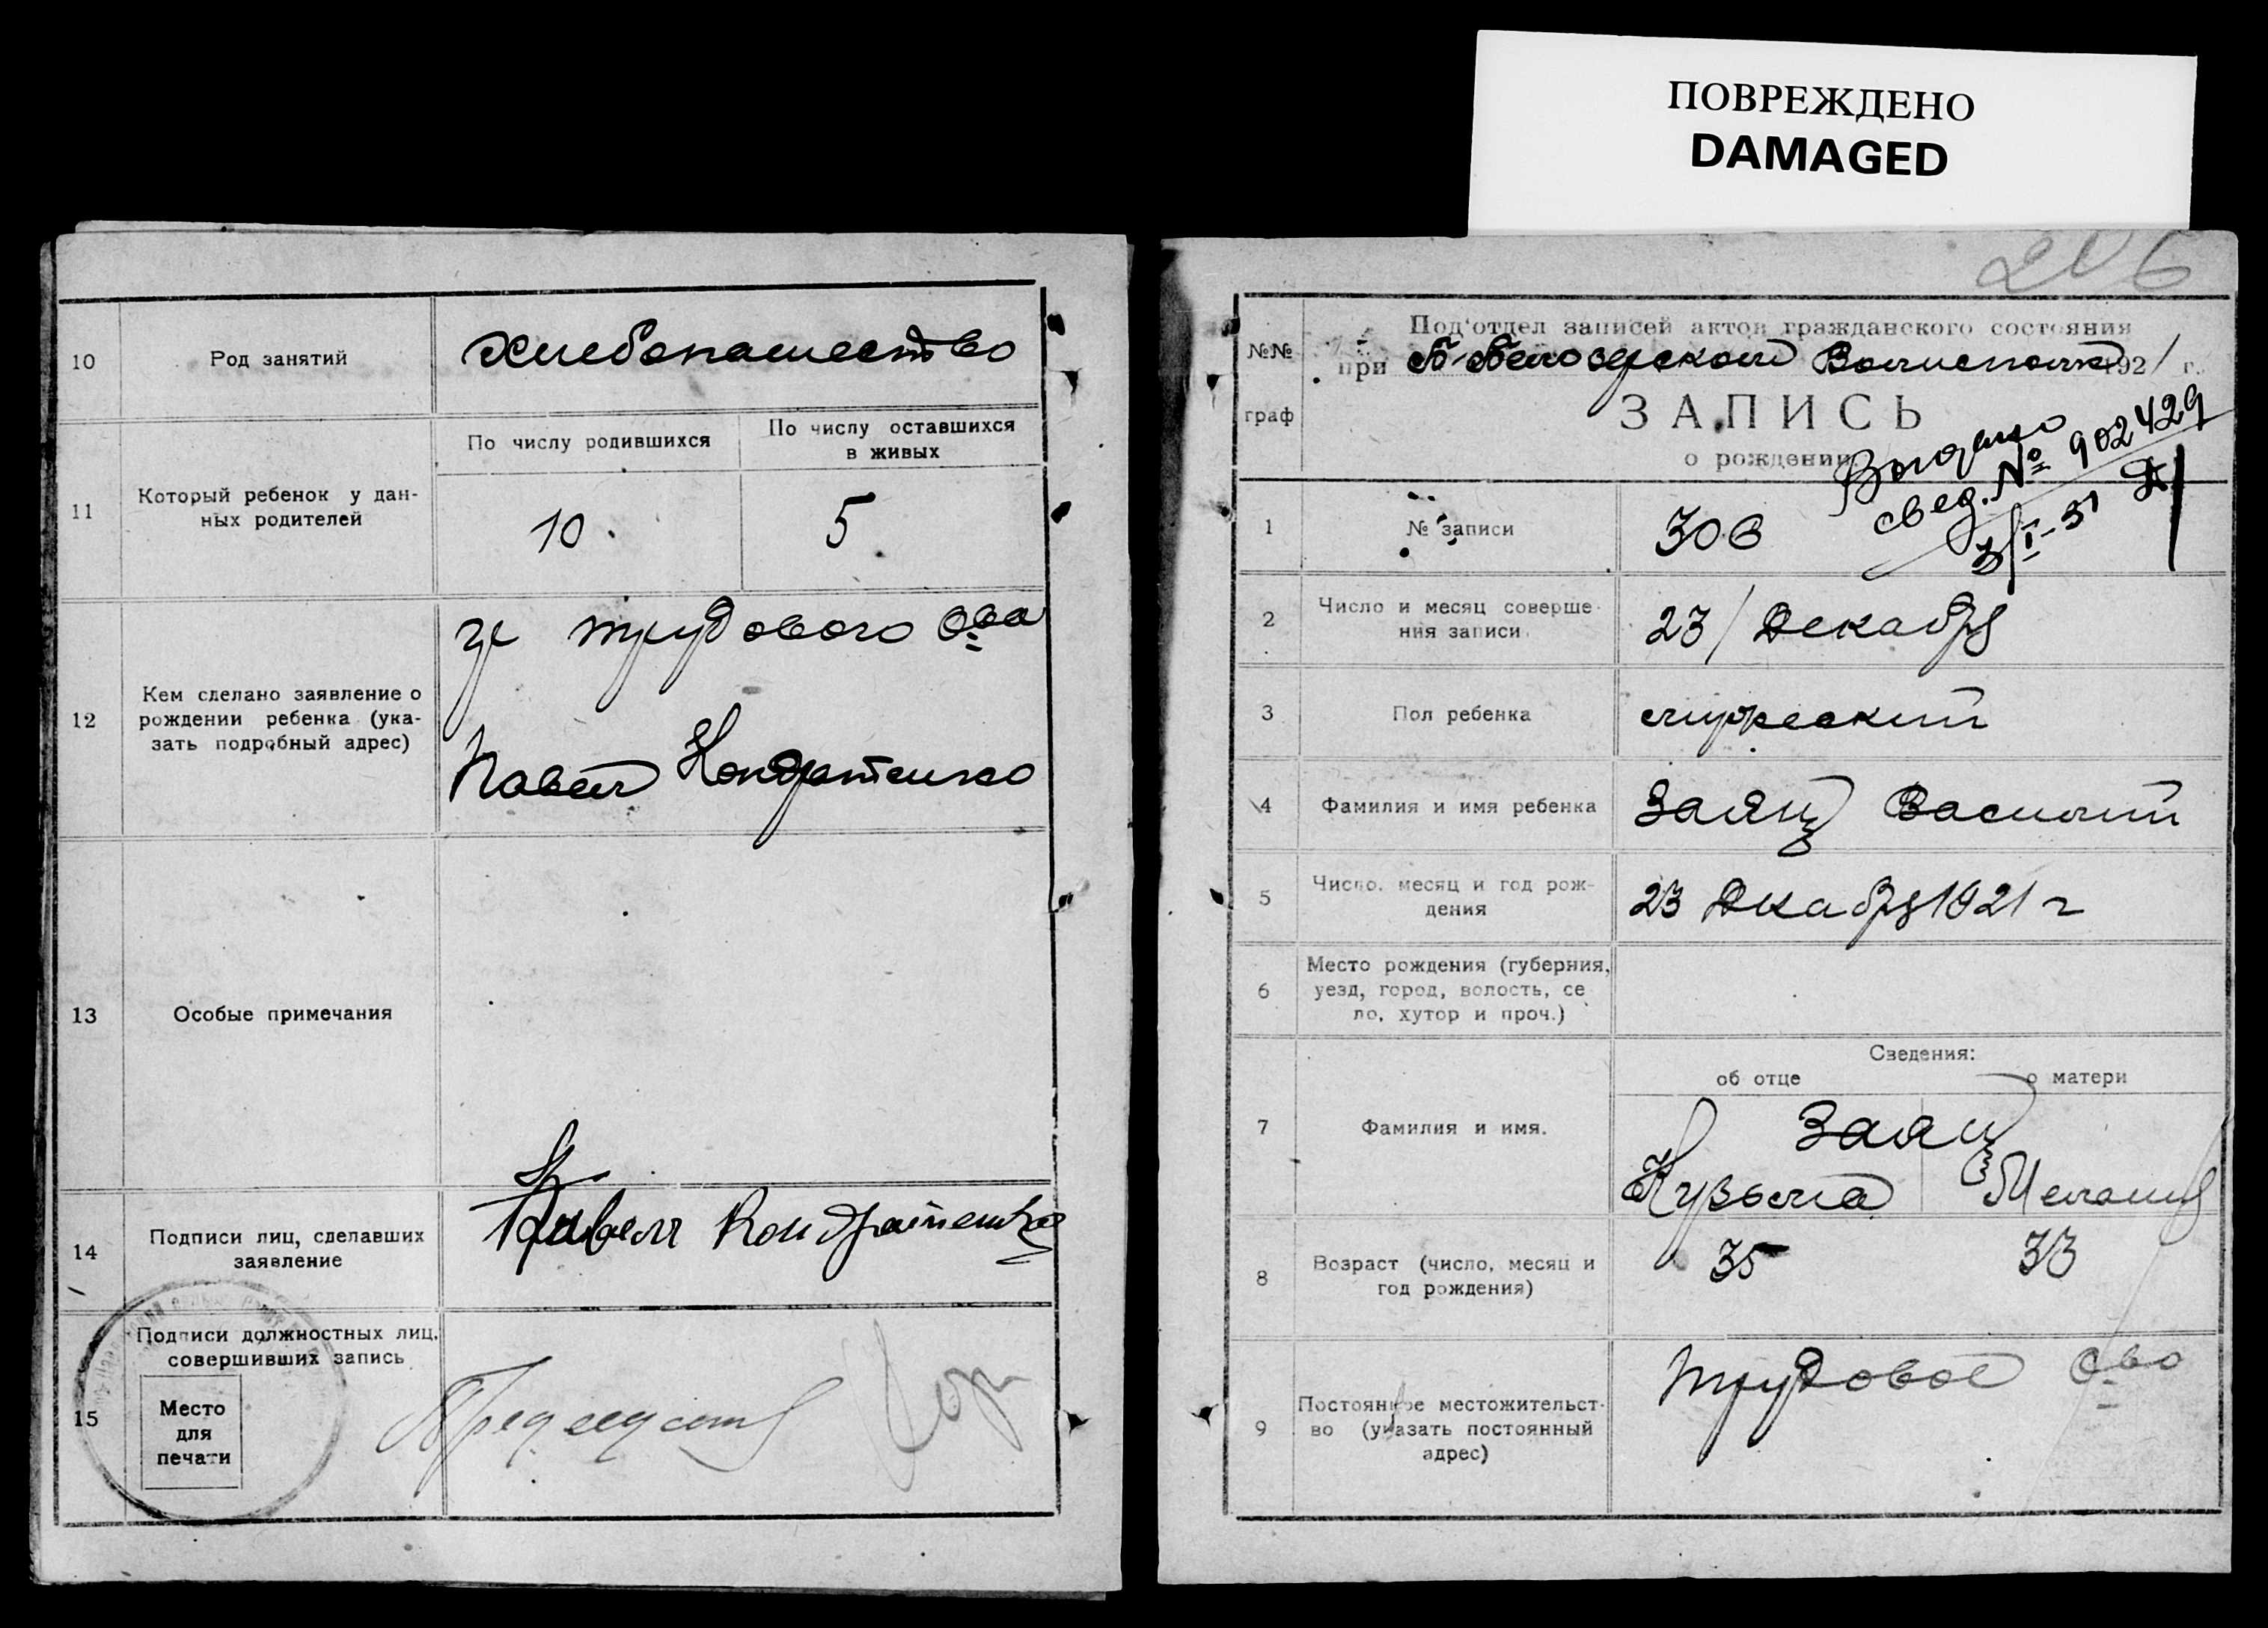 ПОВРЕЖДЕНО
DAMAGED
10
Род занятий
хлебопашество
11
Который ребенок у дан-
ных родителей
По числу родившихся
По числу оставшихся
в живых
10.
5
12
Кем сделано заявление о
рождении ребенка (ука-
зать подробный адрес)
трудового о-ва
Павел Кондратенко
13
Особые примечания
14
Подписи лиц, сделавших
заявление
Павел Кондратенко
15
Подписи должностных лиц,
совершивших запись
Место
для
печати
206
№№
граф
Под'отдел записей актов гражданского состояния
при Б-Белозерском Волисполк 1921 г.
ЗАПИСЬ
о рождении
Выдано
свед. № 902429
3/I-31
1
№ записи
306
2
Число и месяц соверше-
ния записи
23/Декабря
3
Пол ребенка
мужеский
4
Фамилия и имя ребенка
Заяц Василий
5
Число, месяц и год рож-
дения
23 Дкабря 1921 г
6
Место рождения (губерния,
уезд, город, волость, се
ло, хутор и проч.)
Сведения:
об отце
о матери
7
Фамилия и имя.
Заяц
Кузьма
Мелания
8
Возраст (число, месяц и
год рождения)
35
33
9
Постоянное местожительст-
во (указать постоянный
адрес)
трудовое о-во